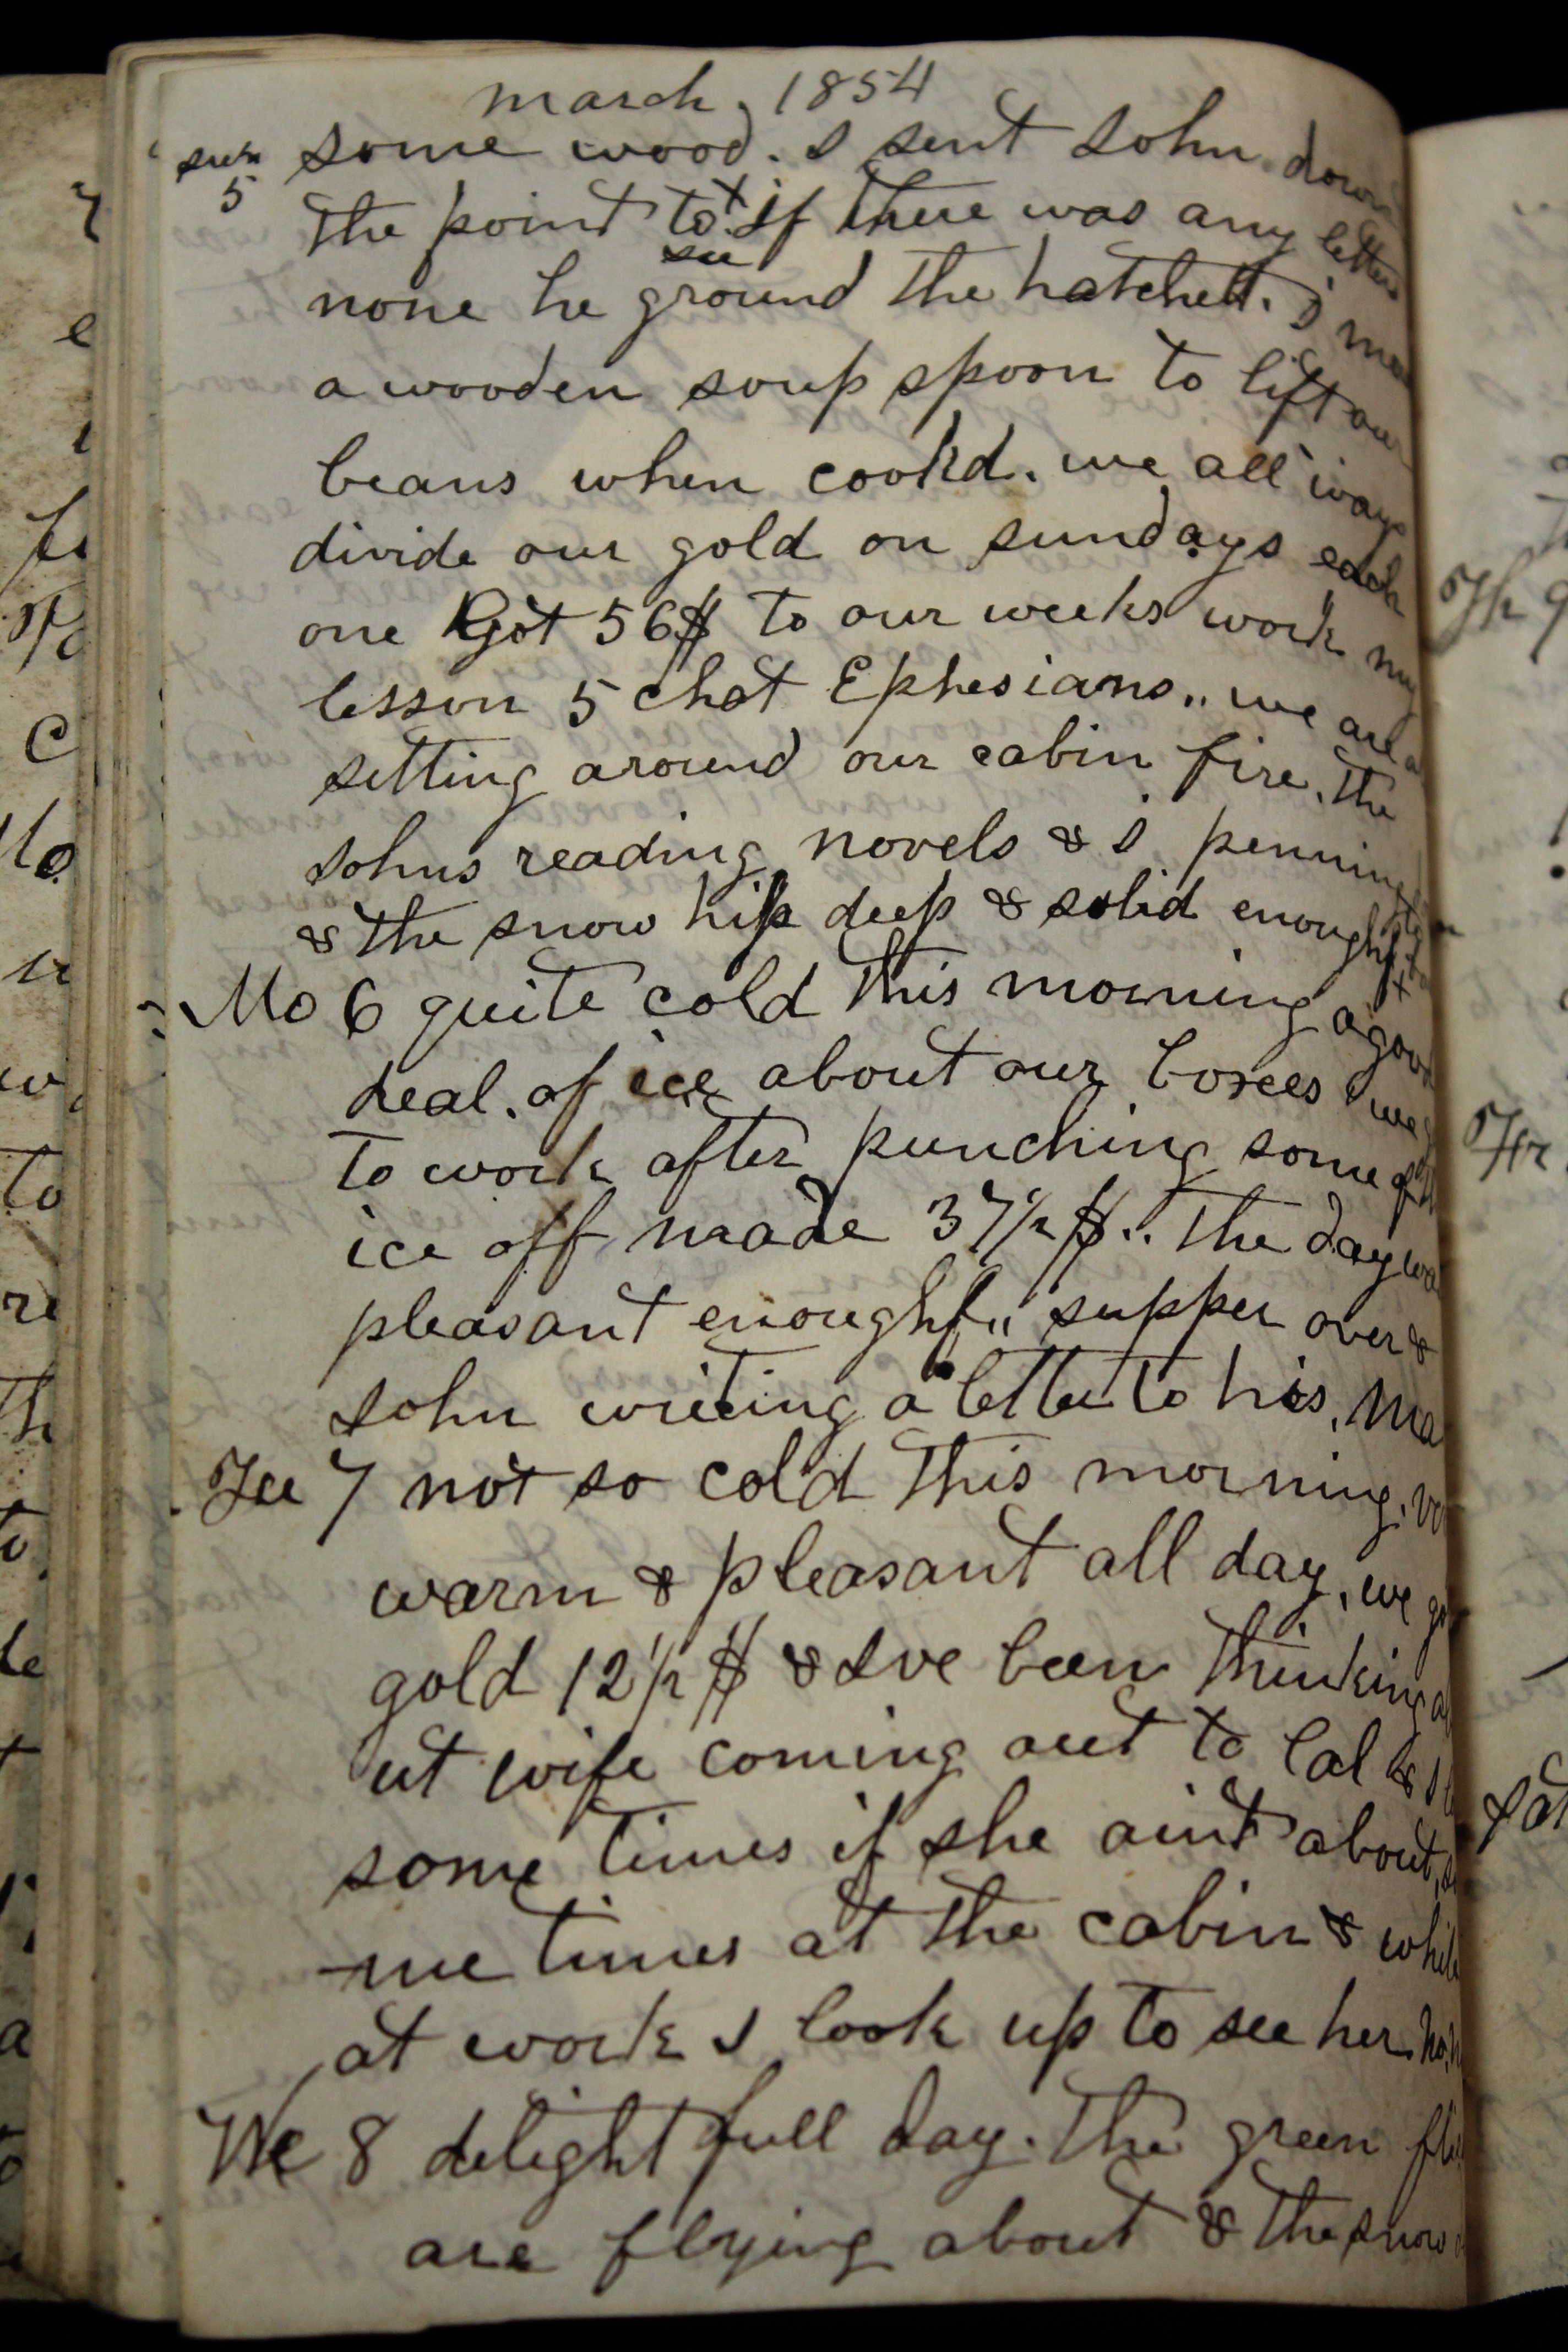 march, 1854
sun some wood. I sent John down
5 the point to x if there was any letters
see
none he ground the hatchett. I
a wooden soup spoon to lift our
beans when cook'd. we all ways
divide our gold on sundays each
one Got 56$ to our weeks work my
lesson 5 chat Ephesians,, we are
setting around our cabin fire, the
Johns reading novels & I penning
& the snow hip deep & solid enough
Mo 6 quite cold this morning a good
deal. of ice about our boxes we
to work after punching some of
ice off made 37 1/2 $.. the day
pleasant enough,, supper over &
John writing a letter to his, Ma
Tue 7 not so cold this morning.
warm & pleasant all day, we
gold 12 1/2 $ & Ive been thinking
ut wife coming out to Cal &
some times if she aint about,
me times at the cabin & while
at work I look up to see her. no,
We 8 delight full day. the green
are flying about & the snow
Th 9
Fr
Sat